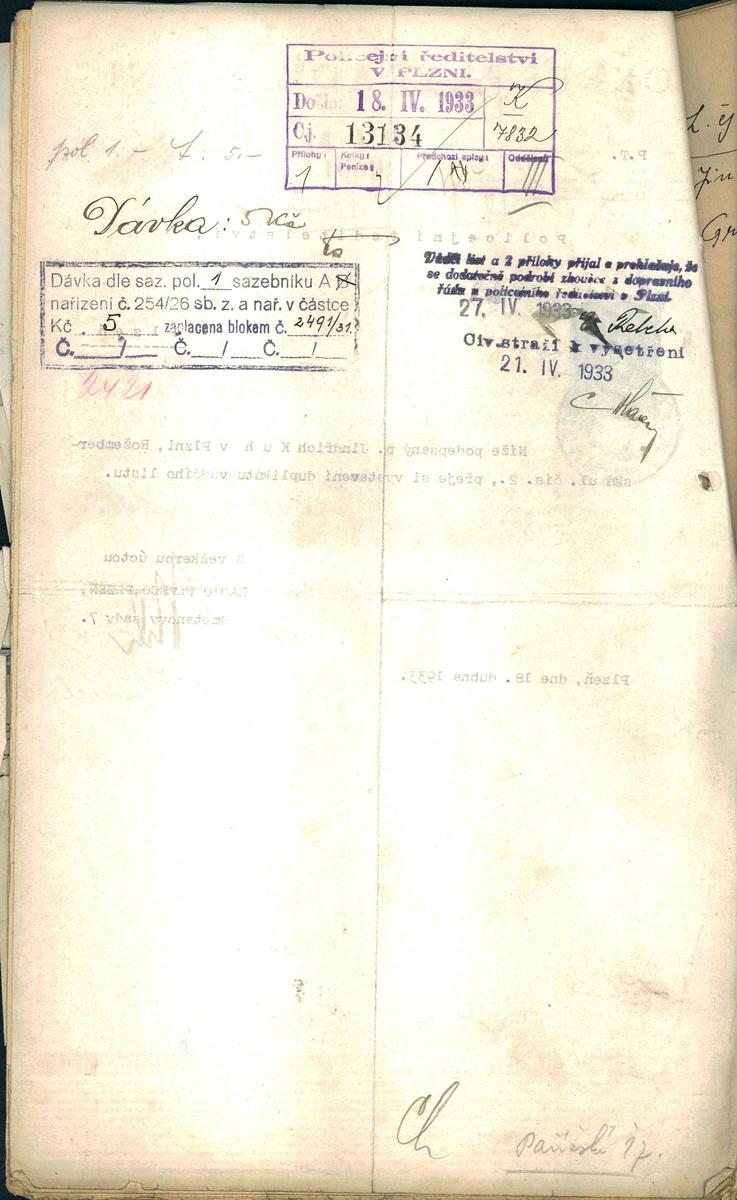 Policejní ředitelství
V PLZNI.
Došlo: 18. IV. 1933
K
7832
Čj. 13134
Přílohy: Kolky: Peníze: Předchozí spisy: Oddělení
1 III
pol. 1. – 5.–
Dávka: 5 Kč
Policejní ředitelství
P.T.
Dávka dle saz. pol. 1 sazebníku A
nařízení č. 254/26 sb. z. a nař. v částce
Kč 5 zaplacena blokem č. 2491/31.
Č. / Č. / Č. /
2421
Vůdčí list a 2 přílohy přijal a prohlašuje, že
se dodatečně podrobí zkoušce z dopravního
řádu u policejního ředitelství v Plzni.
27. IV. 1933
Civ. stráži k vyšetření
21. IV. 1933
Níže podepsaný p. Jindřich Kuh v Plzni, Rožember-
ská ul. čís. 2., přeje si vystavení duplikátu vůdčího listu.
S veškerou úctou
PLZEŇ,
Smetanovy sady 7.
Plzeň, dne 18. dubna 1933.
Ch
17.